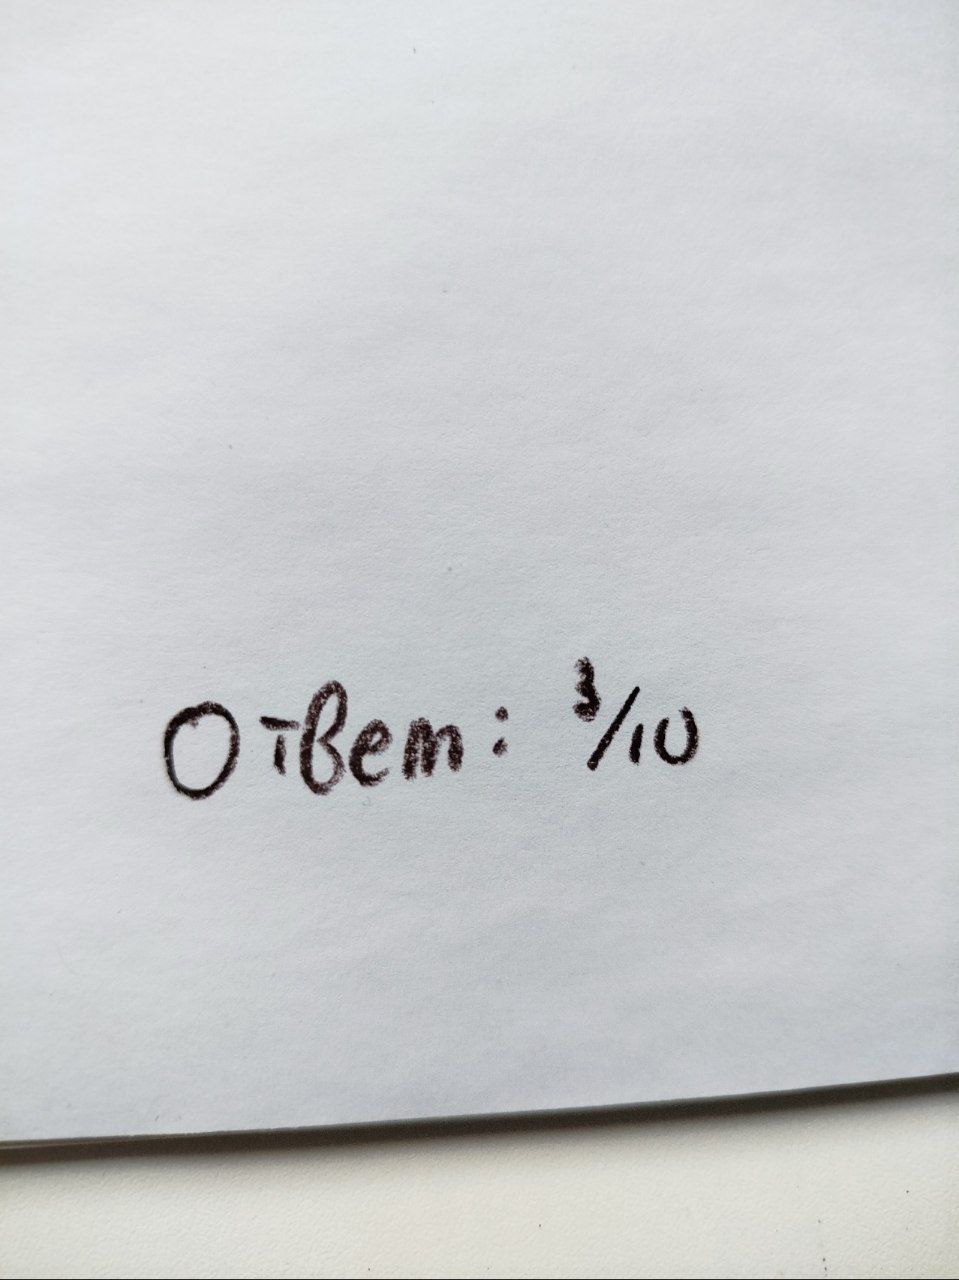 Ответ: 3/10